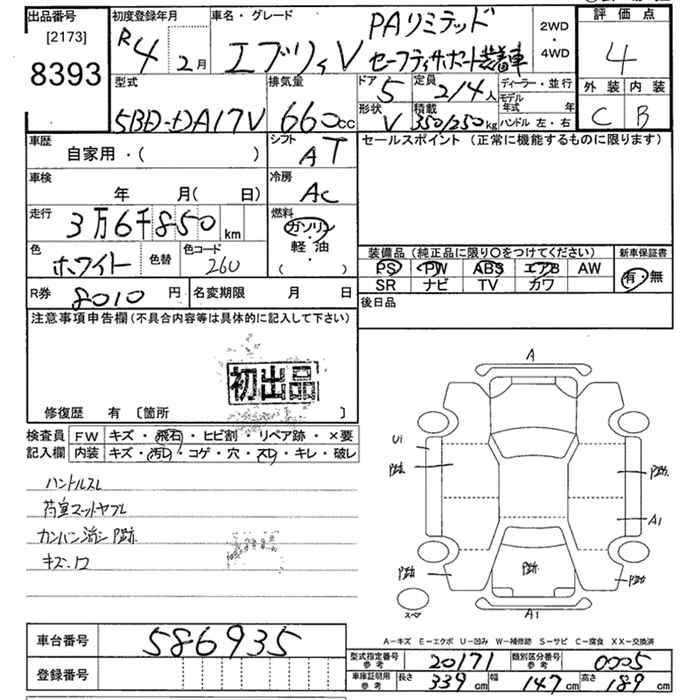 出品番号
[2173]
8393
初度登録年月
R4年 2月
車名・グレード
エブリィV
PAリミテッド
セーフティサポート装着車
2WD
・
4WD
評価点
4
外装 内装
C B
型式
5BD-DA17V
排気量
660cc
ドア 5
定員 2/4人
形状 V
積載 350/250kg
ディーラー・並行
モデル年式 年
ハンドル 左・右
車歴
自家用・( )
シフト
AT
セールスポイント (正常に機能するものに限ります)
車検
年 月(日)
冷房
AC
走行
3万6千850km
燃料
ガソリン
軽・油
( ・ )
色
ホワイト
色替
色コード
260
装備品 (純正品に限り○をつけてください)
新車保証書
PS PW ABS エアB AW
SR ナビ TV カワ
有・無
R券 8010円
名変期限 月 日
後日品
注意事項申告欄(不具合内容等は具体的に記入して下さい)
初出品
修復歴 有 〔箇所 〕
検査員
記入欄
FW キズ・飛石・ヒビ割・リペア跡・×要
内装 キズ・汚レ・コゲ・穴・スレ・キレ・破レ
ハンドルスレ
荷室マットヤブレ
カンバン消シ 跡
キズ・凹
A
U1
A1
A1
スペア
A-キズ E-エクボ U-凹み W-補修跡 S-サビ C-腐食 XX-交換済
車台番号 586935
登録番号
型式指定番号 参考 20171
類別区分番号 参考 0005
車庫証明用 参考 長さ 339cm 幅 147cm 高さ 189cm